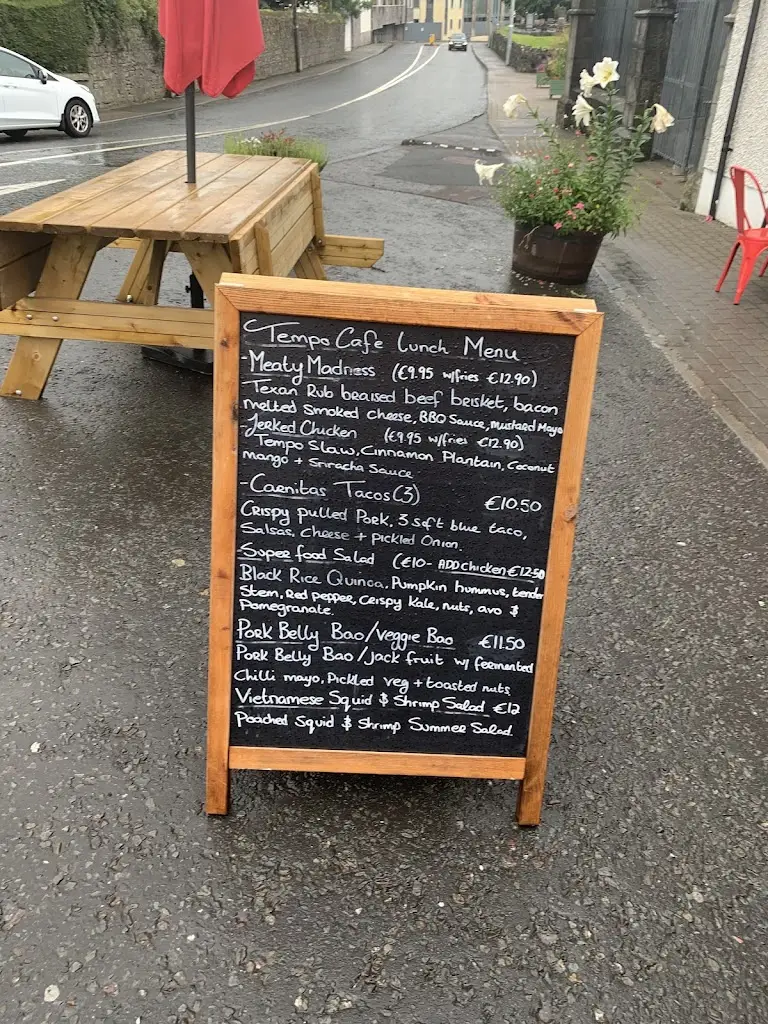 Tempo Cafe Lunch Menu
-Meaty Madness (€9.95 w/fries €12.90)
Texan Rub braised beef brisket, bacon
melted smoked cheese, BBQ Sauce, mustard Mayo
-Jerked Chicken (€9.95 w/fries €12.90)
Tempo Slaw, Cinnamon Plantain, Coconut
mango + Sriracha Sauce
-Carnitas Tacos (3) €10.50
Crispy pulled Pork, 3 soft blue taco,
Salsas, Cheese + pickled Onion.
-Super food Salad (€10- ADD Chicken €12.50
Black Rice Quinoa, Pumpkin hummus, tender
Stem, red pepper, crispy kale, nuts, avo &
Pomegranate.
Pork Belly Bao/Veggie Bao €11.50
Pork Belly Bao/jack fruit w/ fermented
Chilli mayo, Pickled veg + toasted nuts
Vietnamese Squid & Shrimp Salad €12
Poached Squid & Shrimp Summer Salad